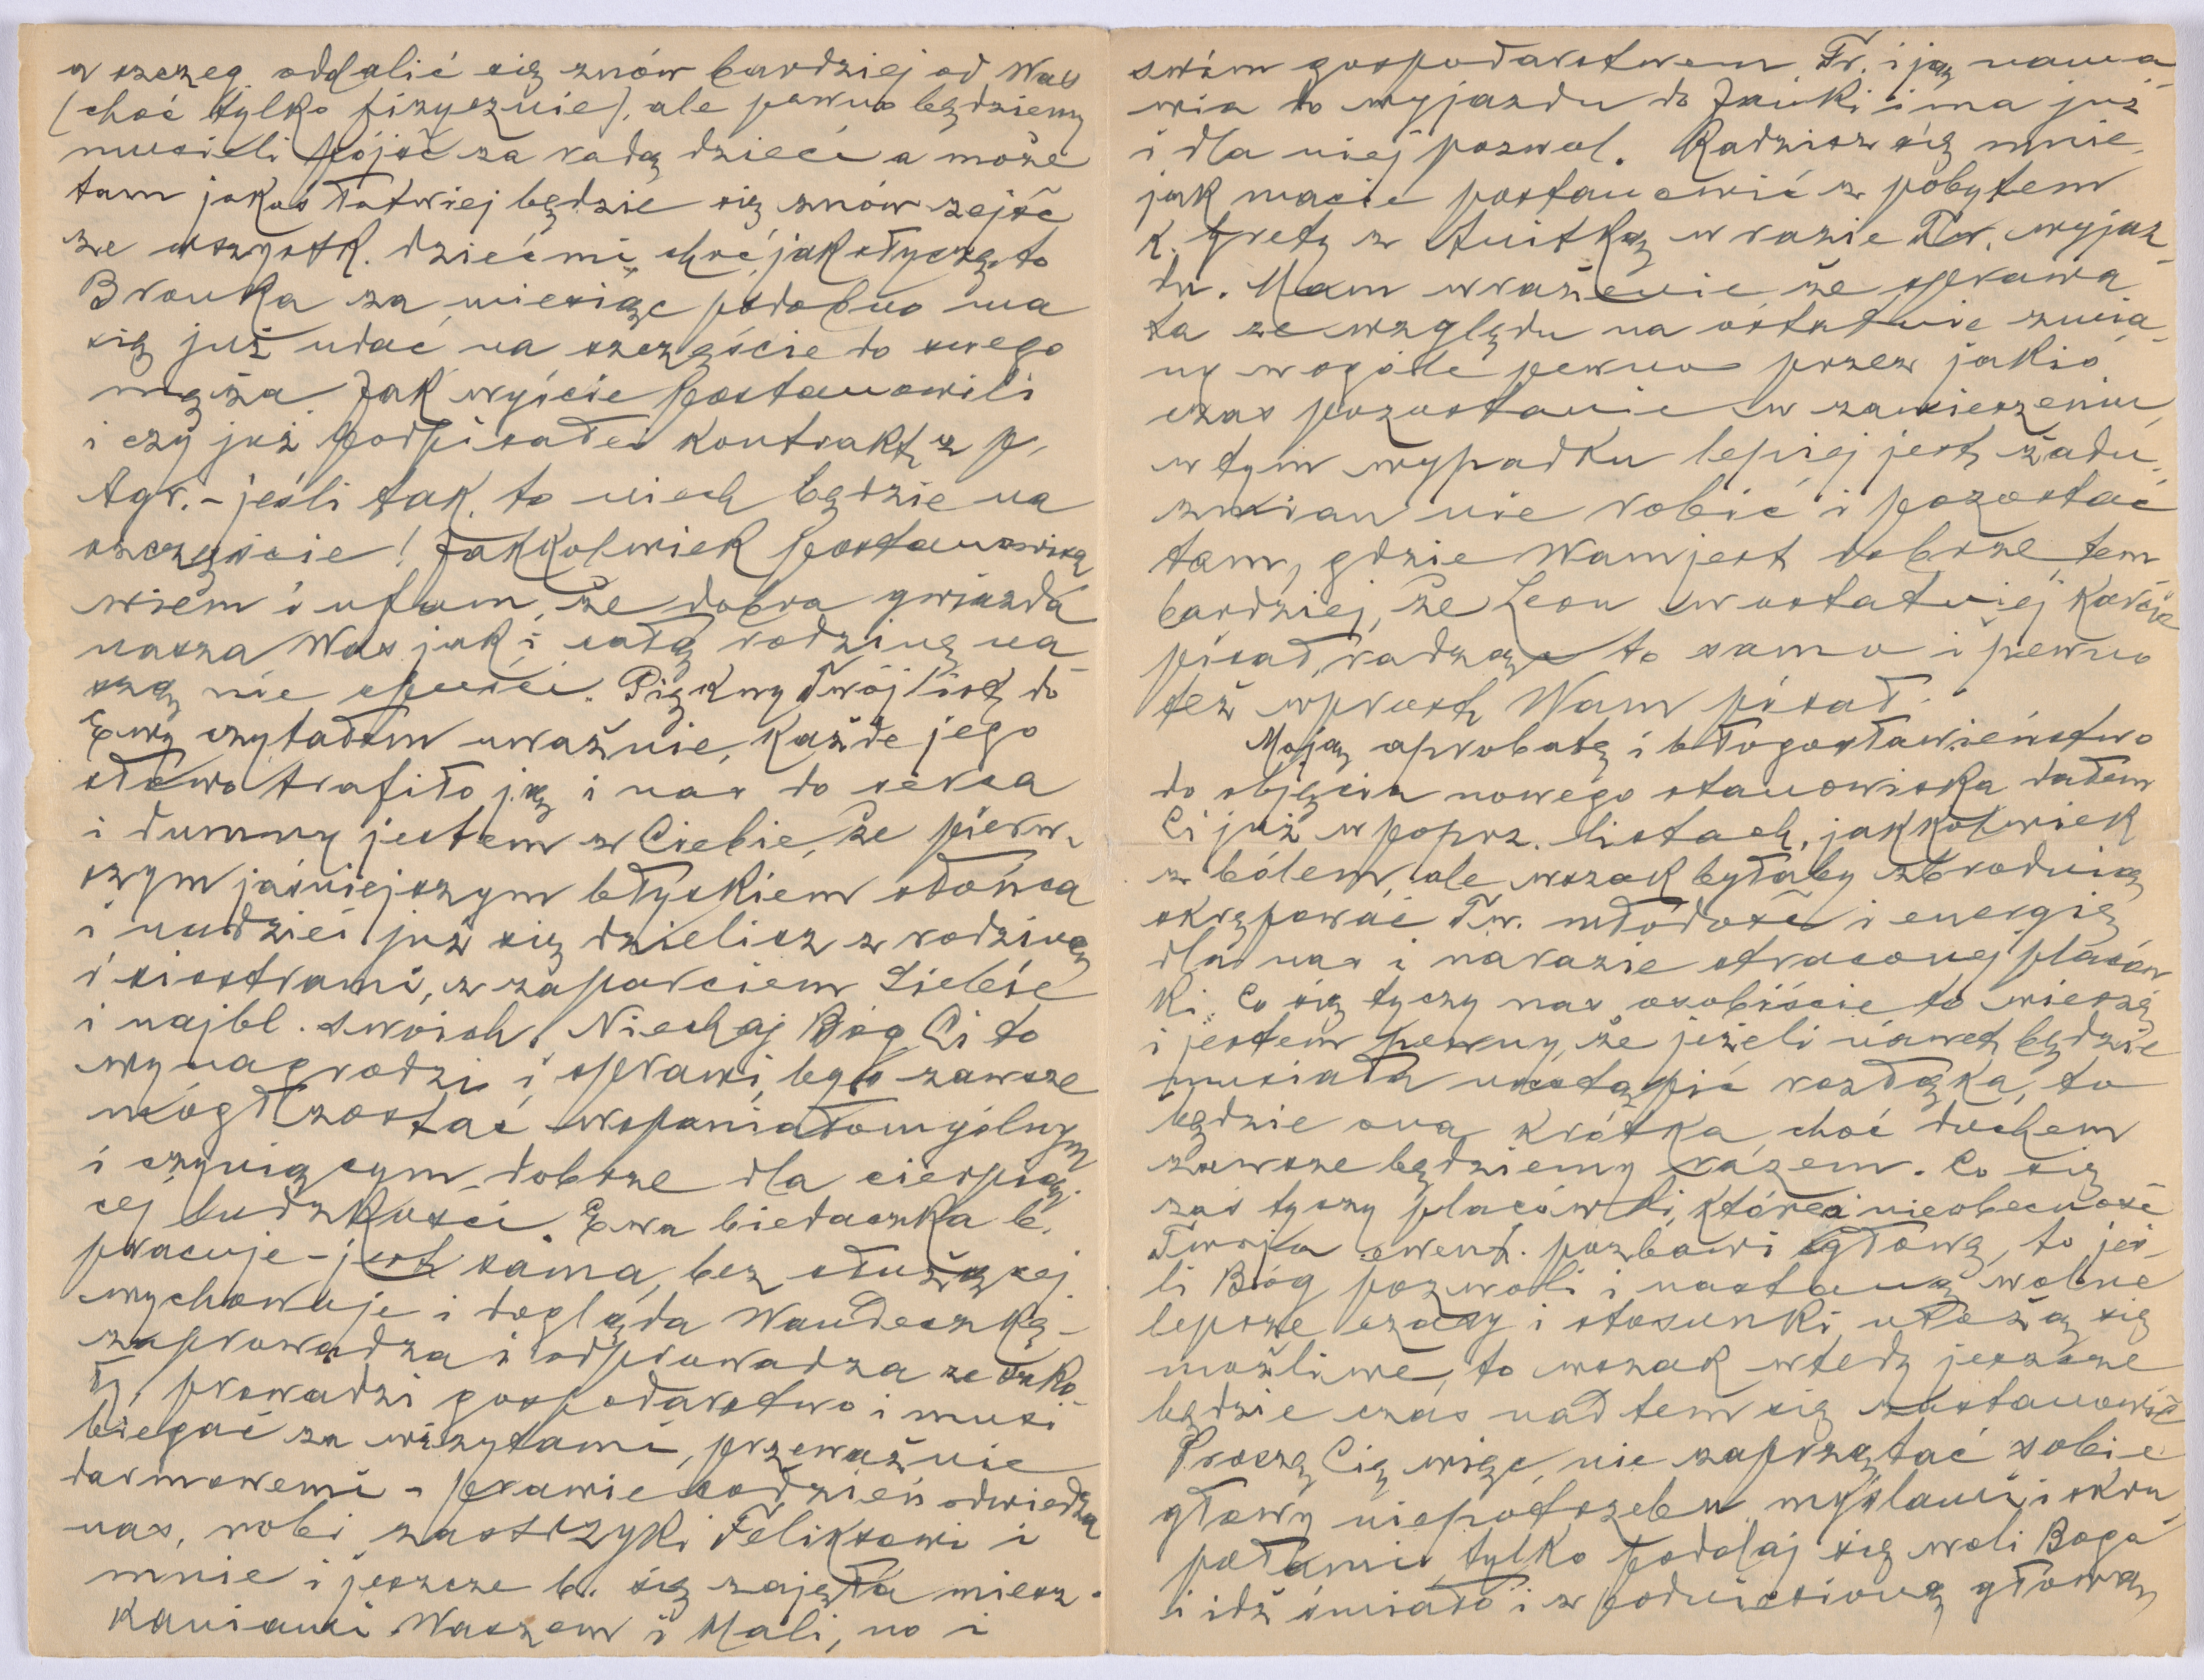 a szczeg. oddalić się znów bardziej od Was
(choć tylko fizycznie), ale pewno będziemy
musieli pójść za radą dzieci a może
tam jakoś łatwiej będzie się znów zejść
ze wszystk. dziećmi, choć jak słyszę, to
Bronka za miesiąc podobno ma
się już udać na szczęście do swego
męża. Jak wyście postanowili
i czy już podpisałeś kontrakt z p.
Agr. - jeśli tak, to niech będzie na
szczęście! Jakkolwiek postanowisz
wiem i ufam, że dobra gwiazda
nasza Was jak i całą rodzinę na-
szą nie opuści. Piękny Twój list do
Ewy czytałem uważnie, każde jego
słowo trafiło ją i nas do serca
i dumny jestem z Ciebie, że pierw-
szym jaśniejszym błyskiem słońca
i nadziei już się dzielisz z rodziną
i siostrami, z zaparciem siebie
i najbl. swoich. Niechaj Bóg Ci to
wynagrodzi i sprawi, byś zawsze
mógł zostać wspaniałomyślnym
i czyniącym dobrze dla cierpią-
cej ludzkości. Ewa biedaczka b.
pracuje - jest sama, bez służącej
wychowuje i dogląda Wandeczkę -
zaprowadza i odprowadza ze szko-
ły, prowadzi gospodarstwo i musi
biegać za wizytami, przeważnie
darmowemi - prawie codzień odwiedza
nas, robi zastrzyki Feliksowi i
mnie i jeszcze b. się zajęła miesz-
kaniami Waszem i Mali, no i
swim gospodarstwem. Fr. i ją nama-
wia do wyjazdu do Janki i ma już
i dla niej pozwol. Radzisz się mnie,
jak macie postanowić z pobytem
k. Grety z Anitką w razie Tw. wyjaz-
du. Mam wrażenie, że sprawa
ta ze względu na ostatnie zmia-
ny wogóle pewno przez jakiś
czas pozostanie w zawieszeniu,
w tym wypadku lepiej jest żadn.
zmian nie robić i pozostać
tam, gdzie Wam jest dobrze tem
bardziej, że Leon w ostatniej karcie
pisał, radząc to samo i pewno
też wprost Wam pisał.
Moją aprobatę i błogosławieństwo
do objęcia nowego stanowiska dałem
Ci już w poprz. listach, jakkolwiek
z bólem, ale wszak byłaby zbrodnią
skrępować Tw. młodość i energię
dla nas i narazie straconej placów-
ki. Co się tyczy nas osobiście to wierzę
i jestem pewny, że jeżeli nawet będzie
musiała nastąpić rozłąka, to
będzie ona krótka, choć duchem
zawsze będziemy razem. Co się
zaś tyczy placówki, której nieobecność
Twoja ewent. pozbawi głowę, to jeś-
li Bóg pozwoli i nastaną wolne
lepsze czasy i stosunki ułożą się
możliwe, to wszak wtedy jeszcze
będzie czas nad tem się zastanowić
Proszę Cię więc, nie zaprzątać sobie
głowy niepotrzebn. myślami i skru-
pułami, tylko poddaj się woli Boga
i idź śmiało i z podniesioną głową